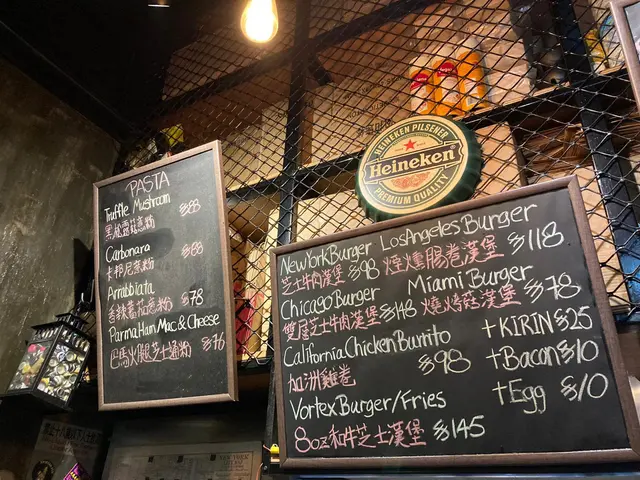 HEINEKEN PILSENER
Heineken
PREMIUM QUALITY
PASTA
Truffle Mushroom $88
黑松露菇意粉
Carbonara $68
卡邦尼意粉
Arrabbiata
香辣蕃茄意粉 $78
Parma Ham Mac & Cheese
巴馬火腿芝士通粉 $76
New York Burger Los Angeles Burger
芝士牛肉漢堡 $98 煙燻腸卷漢堡 $118
Chicago Burger Miami Burger
雙層芝士牛肉漢堡 $148 燒烤菇漢堡 $78
California Chicken Burrito +KIRIN $25
加洲雞卷 $98 +Bacon $10
Vortex Burger/Fries +Egg $10
8oz和牛芝士漢堡 $145